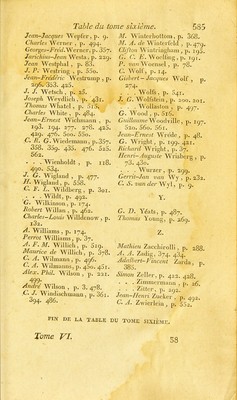 Table du tome sixième. 585
Jean-Jacques Wepfer, p. 9.
Charles Werner, p. 494.
Georges-Fréd. Werner, p. 357.
Jorichino-Jean Westa; p. 229.
Jean Westphal, p. 83.
J. P. Westring, p. 559.
Jean-Frédéric Westrump, p.
206. 353. 425.
J. J. Wetsch, p. 25.
Joseph Weyllich, p. 431.
Thomas Whatel, p. 515.
Charles White, p. 484.
Jean-Ernest Wichmann, p.
193. 194. 277. 278. 425.
429. 476. 500. 550.
C. R. G. Wiedemann, p. 357.
358. 359. 435. 476. 525.
562.
. . . Wienholdt, p. 118.
490. 534.
J. G. Wigland, p. 477.
H. Wigland, p. 558.
C. F. L. Wildberg, p. 321.
. . . Wildt, p. 492.
G. Wilkinson, p. 174.
Robert Willan, p. 461.
Charles-Louis Willdenow, p.
132.
A. Williams, p. 174.
Pierce Williams, p. 37.
A. F. M. Willich, p. 519.
Maurice de Willich, p. 378.
C. A. Wilmann, p. 496.
C. A. Wilmanns, p. 450. 451.
Alex. Phil. Wilson, p. 221.
499.
André Wilson, p. 3. 478.
C. J. Windischmann, p. 361.
394. 486.
M. Winterbottom, p. 368.
M. A. de Winterfeld, p. 479.
Clifton Wintringham, p. 192.
G. C. E. Woelling, p. 191.
P. van Woensel, p. 78.
C. Wolf, p. 14.
Gisbert-Jacques Wolf, p.
274.
. . . Wolfe, p. 541.
J. G. Wolfstein, p. 200. 201.
. . . Wollaston, p. 497.
G. Wood, p. 516.
Guillaume Woodville, p. 197.
520. 560. 561.
Jean-Ernest Wreide, p. 48.
G. Wright, p. 199. 421.
Richard Wright, p. 37.
Henri-Auguste Wrisberg, p.
73. 430.
. . . Wurzer, p. 299.
Gerrit-Jan van Wy, p. 232.
C. S. van der Wyl, p. 9.
Y.
G. D. Yeats, p. 487.
Thomas Young, p. 269.
Z.
Mathieu Zacchirolli, p. 288.
A. A. Zadig, p. 474. 434.
Adalbert-Vincent Zarda, p.
385.
Simon Zeller, p. 422. 428.
. . . Zimmermann, p. 26.
. . . Zitter, p. 292.
Jean-Henri Zucker, p. 492.
C. A. Zwierlein, p. 352.
FIN DE LA TABLE DU TOME SIXIÈME.
Tome VI. 38